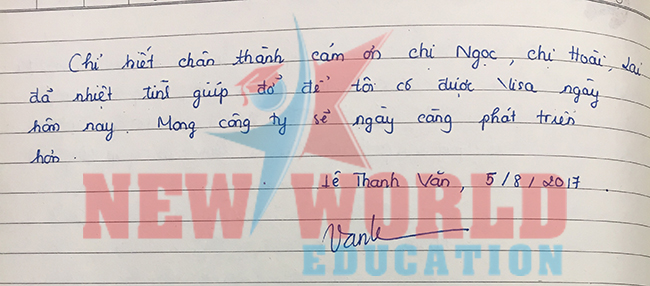 Chỉ biết chân thành cám ơn chị Ngọc, chị Hoài,
đã nhiệt tình giúp đỡ để tôi có được Visa ngày
hôm nay. Mong công ty sẽ ngày càng phát triển
hơn.
Lê Thanh Vân, 5/8/2017
NEW WORLD
EDUCATION